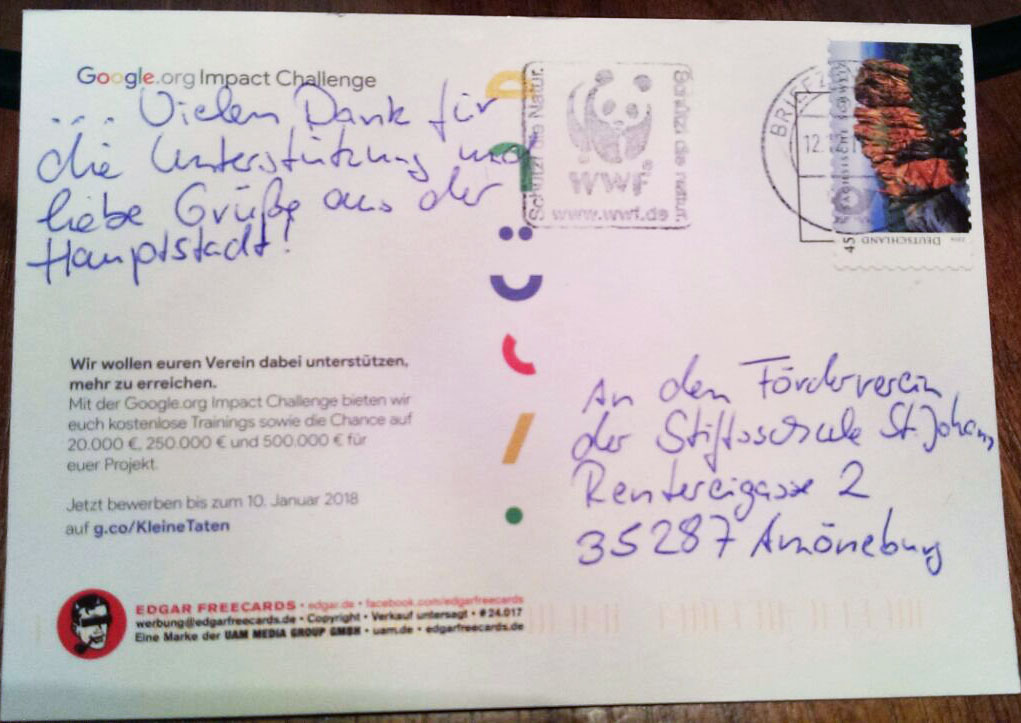 Google.org Impact Challenge
... Vielen Dank für
die Unterstützung und
liebe Grüße aus der
Hauptstadt!
Schützt die Natur.
WWF®
www.wwf.de
Schützt die Natur.
BRIEFZ
12.
SÄCHSISCHE SCHWEIZ
45
DEUTSCHLAND
Wir wollen euren Verein dabei unterstützen,
mehr zu erreichen.
Mit der Google.org Impact Challenge bieten wir
euch kostenlose Trainings sowie die Chance auf
20.000 €, 250.000 € und 500.000 € für
euer Projekt.
Jetzt bewerben bis zum 10. Januar 2018
auf g.co/KleineTaten
An den Förderverein
der Stiftsschule St. Johann
Rentereigasse 2
35287 Amöneburg
EDGAR FREECARDS • edgar.de • facebook.com/edgarfreecards
werbung@edgarfreecards.de • Copyright • Verkauf untersagt • #24.017
Eine Marke der UAM MEDIA GROUP GMBH • uam.de • edgarfreecards.de